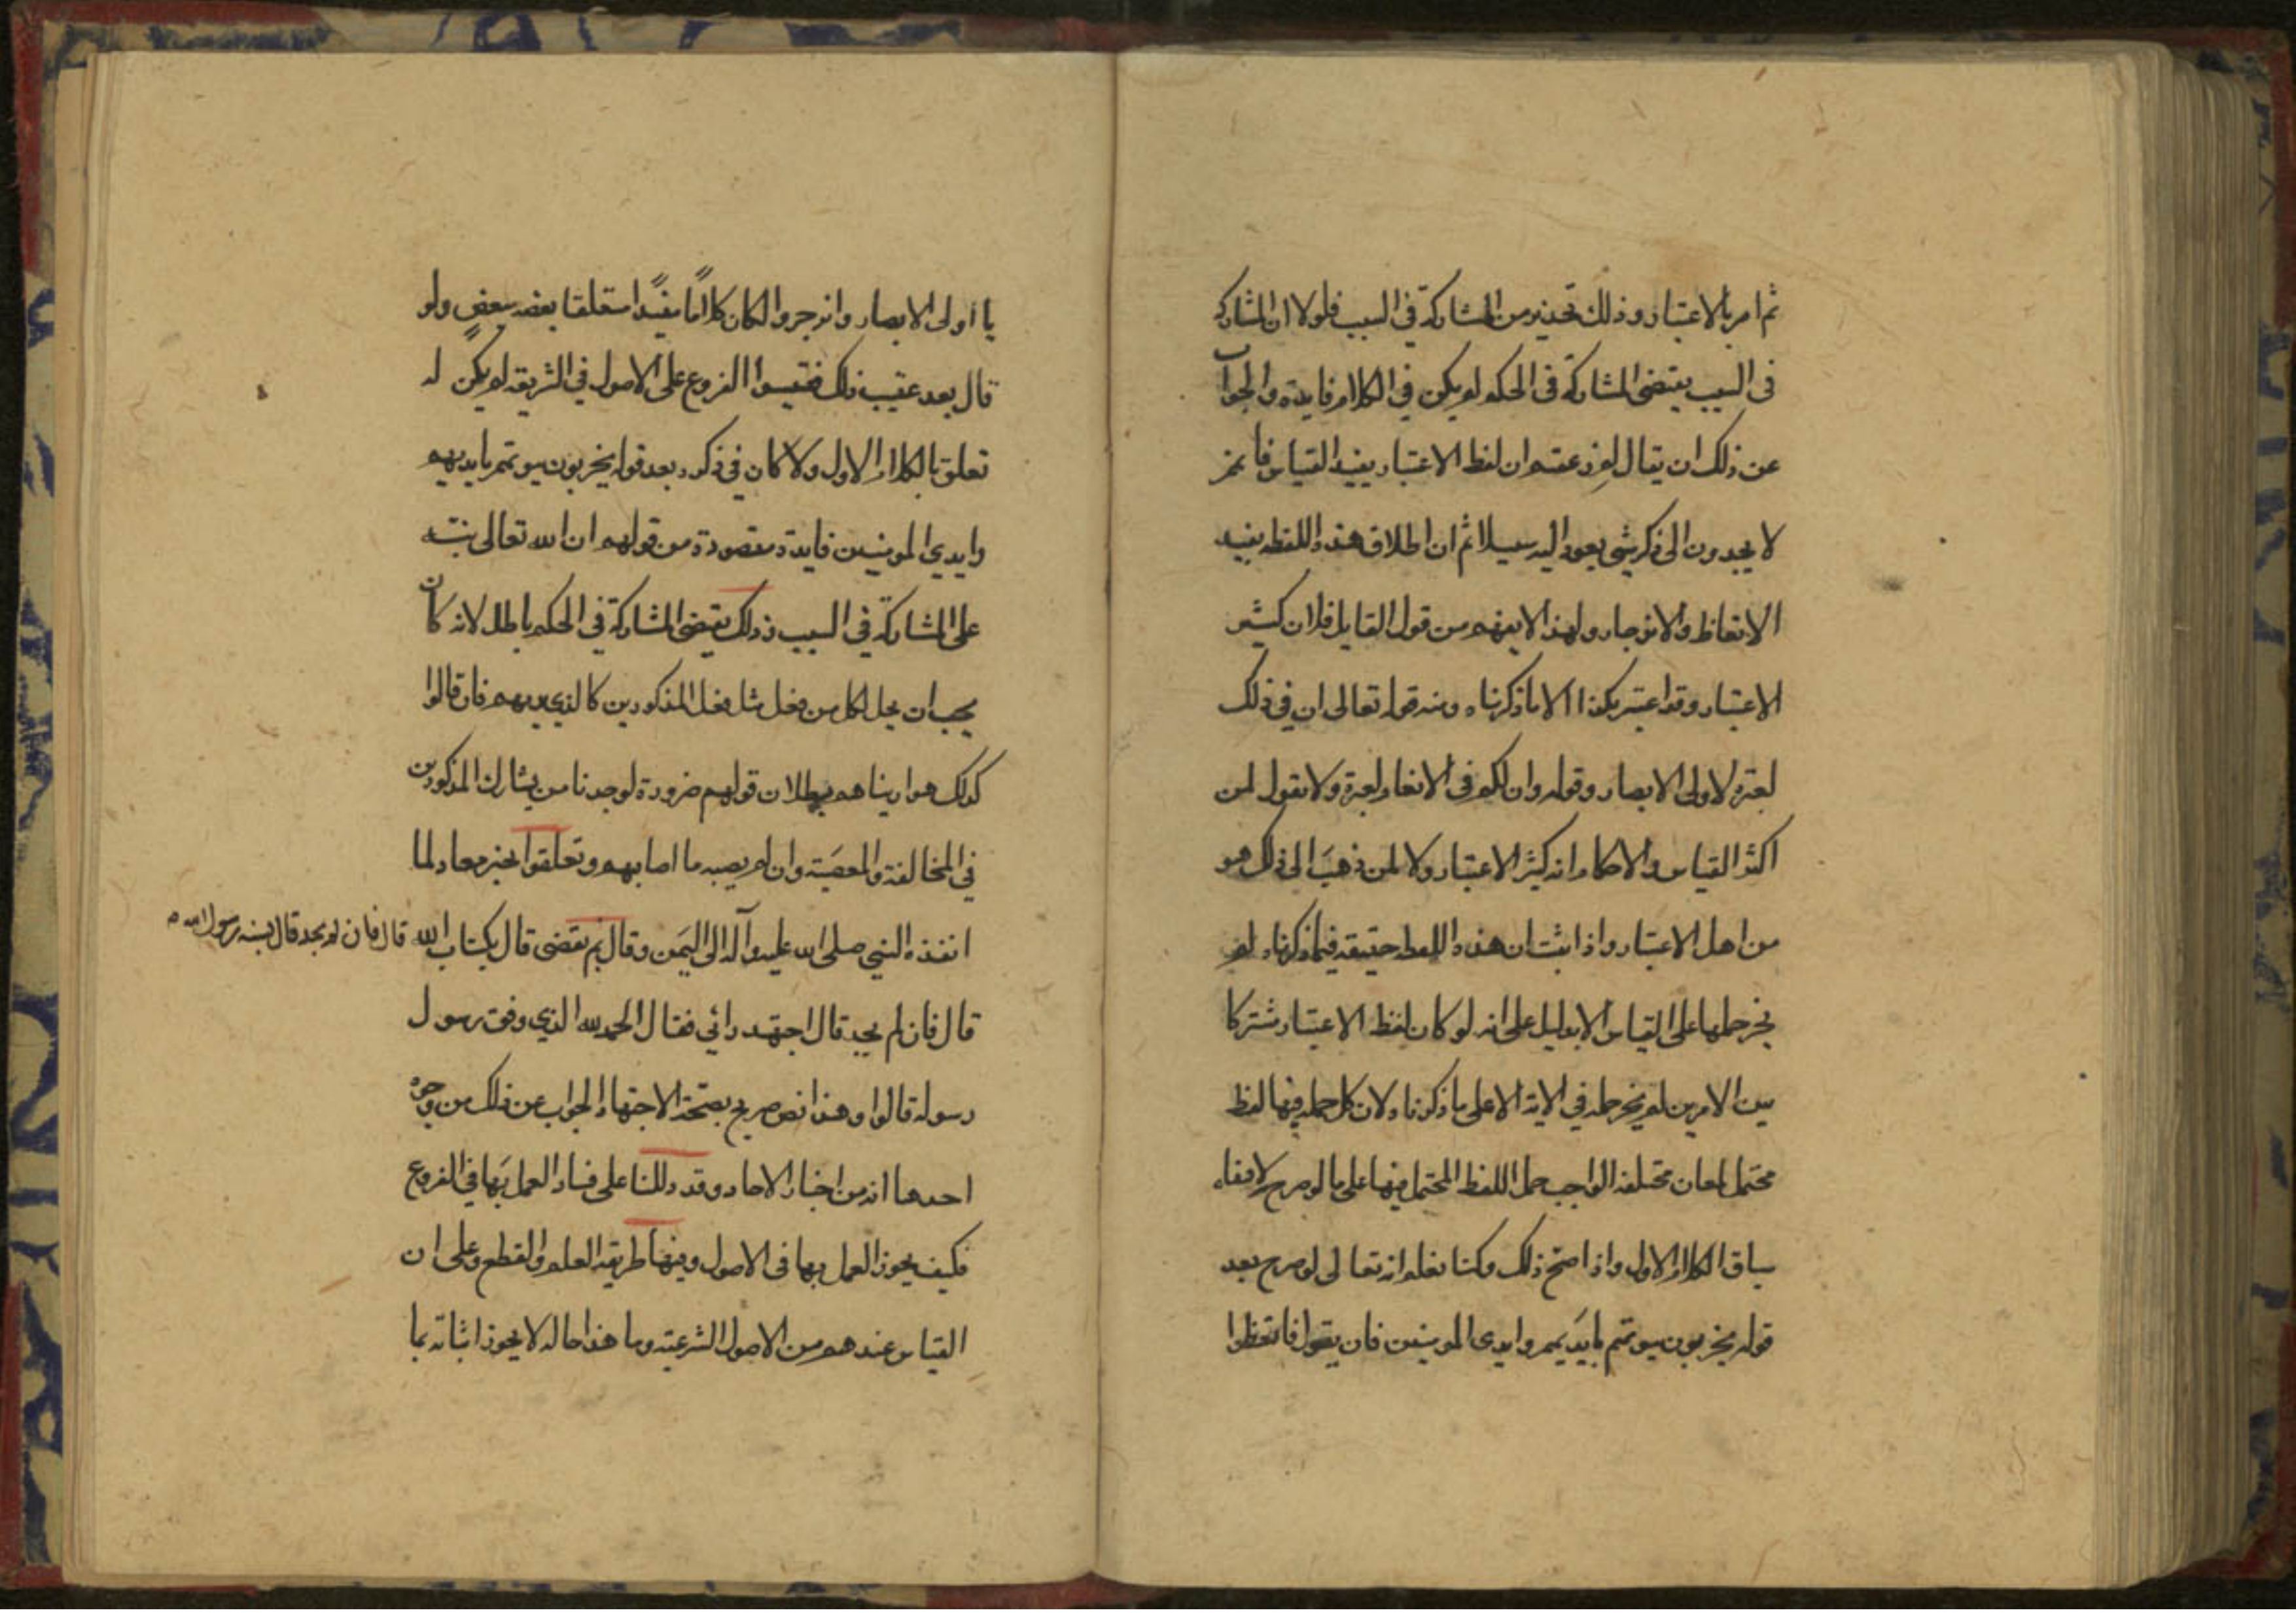 ثم امر بالاعتبار وذلك تحذير من المشاركة في السبب فلولا ان المشاركة
في السبب يقتضي المشاركة في الحكم لم يكن في الكلام فايدة والجواب
عن ذلك ان يقال لم زعمتم ان لفظ الاعتبار يفيد القياس فانهم
لا يجدون الى ذكر شي يعود اليه سبيلا ثم ان اطلاق هذه اللفظه يفيد
الاتعاظ والانزجار ولهذا لا يفهم من قول القايل فلان كثير
الاعتبار وقد اعتبر بكذا الا ما ذكرناه ومنه قوله تعالى ان في ذلك
لعبرة لاولى الابصار وقوله وان لكم في الانعام لعبرة ولا نقول لمن
اكثر القياس والاحكام انه كثير الاعتبار ولا لمن ذهب الى ذلك هو
من اهل الاعتبار واذا ثبت ان هذه اللفظه حقيقه فيما ذكرناه لم
يجز حملها على القياس الا بدليل على انه لو كان لفظ الاعتبار مشتركا
بين الامرين لم يجز حمله في الاية الا على ما ذكرناه لان كل جمله فيها لفظ
محتمل لمعان مختلفة الواجب حمل اللفظ المحتمل فيها على ما لو صرح لافقاه
سياق الكلام الاول واذا صح ذلك وكنا نعلم انه تعالى لو صرح بعد
قوله يخربون بيوتهم بايديهم وايدي المومنين فان يقول فاتعظوا
يا اولى الابصار وانزجروا لكان كلاماً مفيداً متعلقا بعضه ببعضٍ ولو
قال بعد عقيب ذلك فقيسوا الفروع على الاصول في الشريعه لم يكن له
تعلق بالكلام الاول ولا كان في ذكره بعد قوله يخربون بيوتهم بايديهم
وايدي المومنين فايدة مقصودة من قولهم ان الله تعالى نبه
على المشاركة في السبب وذلك يقتضي المشاركة في الحكم باطل لانه كان
يجب ان يحل لكل من فعل مثل فعل المذكورين كالذي بهم فان قالوا
كذلك هو اريناهم بطلان قولهم ضرورة لوجدنا من يشارك المذكورين
في المخالفة والمعصية وان لم يصبه ما اصابهم وتعلقوا بخبر معاذ لما
انفذه النبي صلى الله عليه وآله الى اليمن وقال بم تقضى قال بكتاب الله قال فان لم يجد قال بسنه رسول الله
قال فان لم يجد قال اجتهد رائي فقال الحمد لله الذي وفق رسول
رسوله قالوا وهذا نص صريح بصحة الاجتهاد والجواب عن ذلك من وجوه
احدها انه من اخبار الاحاد وقد دللنا على فساد العمل بها في الفروع
فكيف يجوز العمل بها في الاصول وفيها طريقه العلم والقطع وعلى ان
القياس عندهم من الاصول الشرعية وما هذا حاله لا يجوز اثباته بما